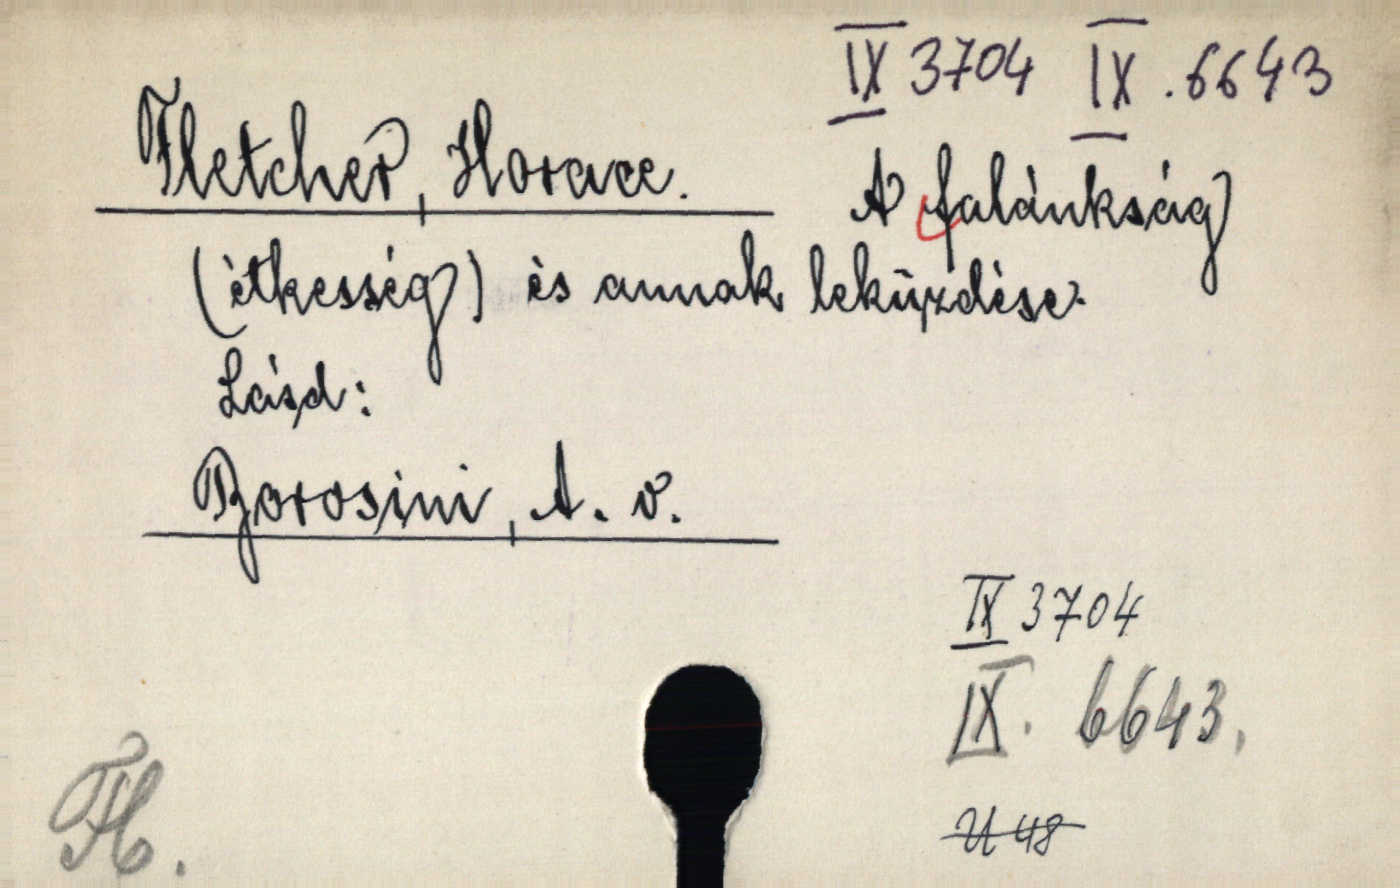 IX 3704 IX. 6643
Fletcher, Horace. A falánkság
(étkesség) és annak leküzdése.
Lásd:
Borosini, A. v.
IX 3704
IX. 6643.
U 48
Fl.